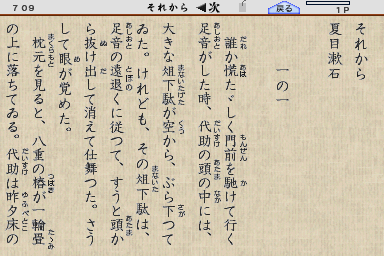 ７０９
それから
◀次
戻る
１Ｐ
それから
夏目漱石
一の一
誰か慌たゞしく門前を馳けて行く
足音がした時、代助の頭の中には、
大きな俎下駄が空から、ぶら下つて
ゐた。けれども、その俎下駄は、
足音の遠退くに従つて、すうと頭か
ら抜け出して消えて仕舞つた。さう
して眼が覚めた。
枕元を見ると、八重の椿が一輪畳
の上に落ちてゐる。代助は昨夕床の